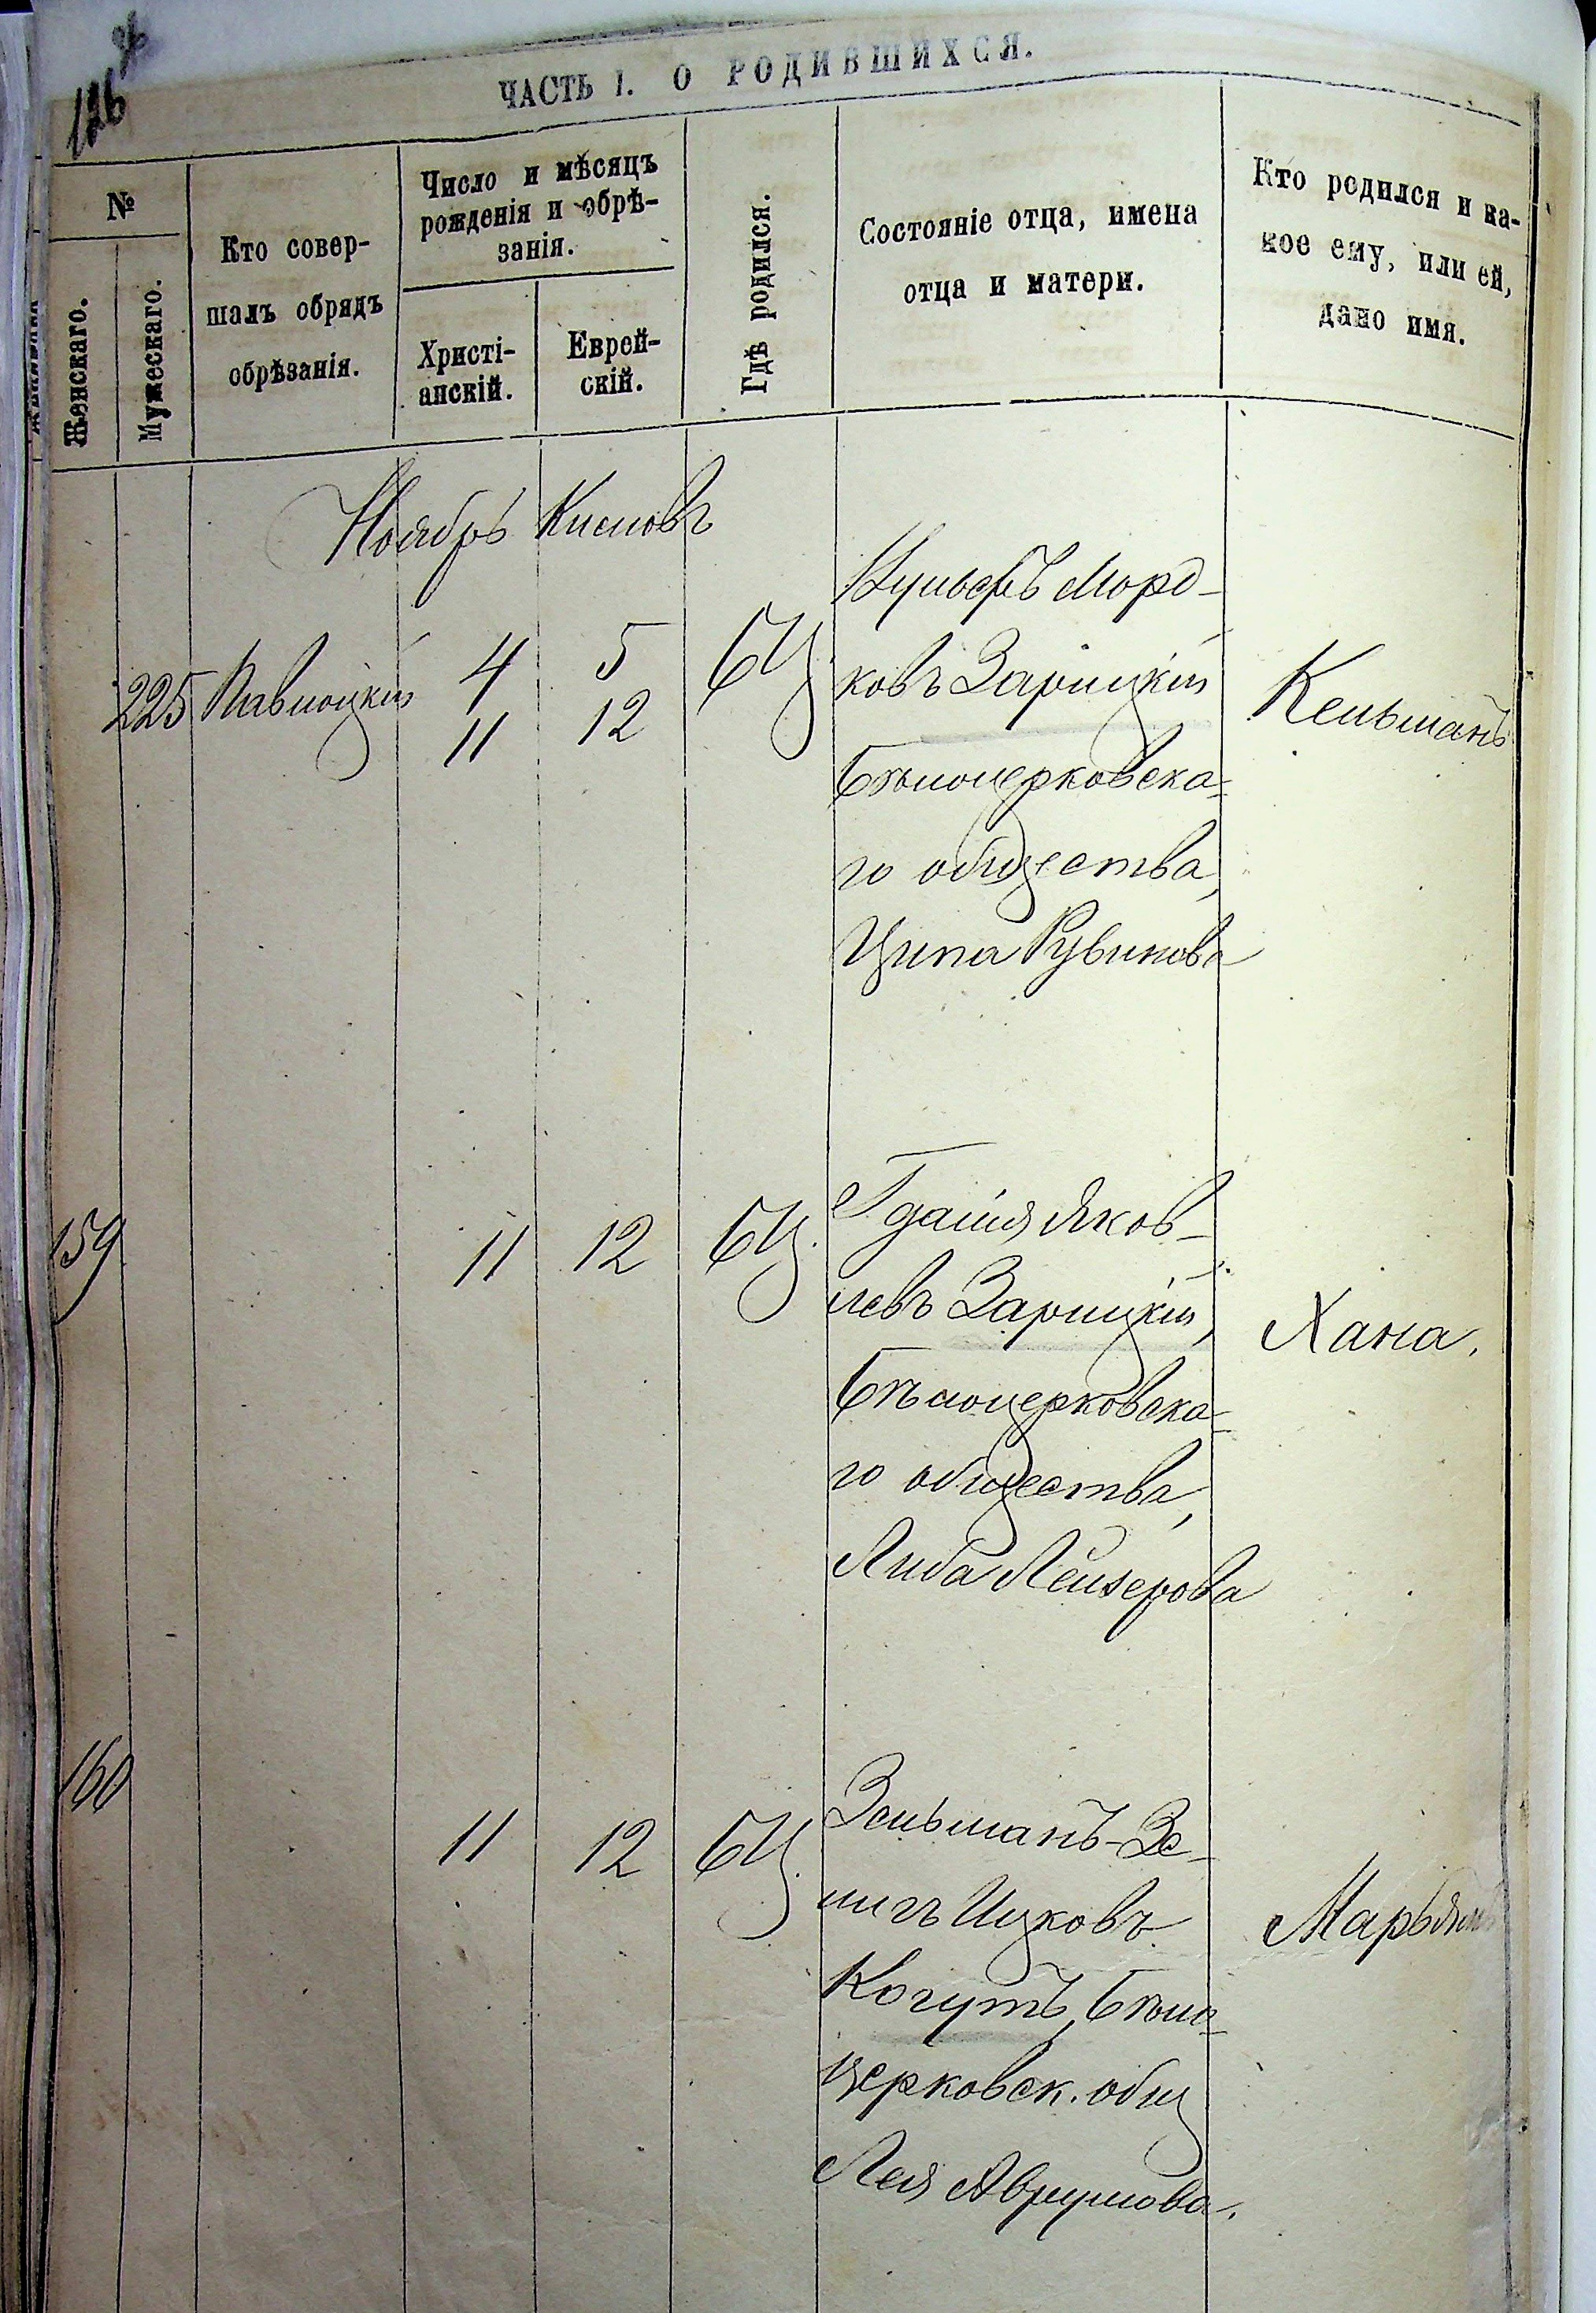 126
ЧАСТЬ I. О РОДИВШИХСЯ.
№
Женскаго.
Мужескаго.
Кто совер-
шалъ обрядъ
обрѣзанія.
Число и мѣсяцъ
рожденія и обрѣ-
занія.
Христі-
анскій.
Еврей-
скій.
Гдѣ родился.
Состояніе отца, имена
отца и матери.
Кто родился и ка-
кое ему, или ей,
дано имя.
Ноябрь Кисловъ
225 4 5 БЦ
11 12
Морд-
ковъ Зарицкій
Бѣлоцерковска-
го общества,
Ципа Рувинова
Кельманъ
159 11 12 БЦ.
Гдалія Яков-
левъ Зарицкій,
Бѣлоцерковска-
го общества,
Либа Лейзерова
Хана.
160 11 12 БЦ.
Зельманъ-Зе-
лигъ Ицковъ
Когутъ, Бѣло-
церковск. общ
Лея Аврумова.